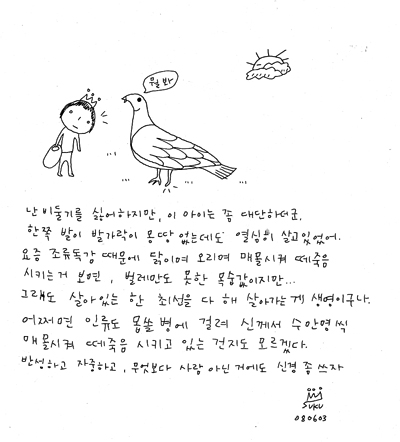 뭘 봐
난 비둘기를 싫어하지만, 이 아이는 꽤 대단하더군.
한쪽 발이 발가락이 몽땅 없는데도 열심히 살고있었어.
요즘 조류독감 때문에 닭이며 오리며 매몰시켜 떼죽음
시키는거 보면, 벌레만도 못한 목숨값이지만...
그래도 살아있는 한 최선을 다 해 살아가는게 생명이구나.
어쩌면 인류도 몹쓸 병에 걸려 신께서 수만명씩
매몰시켜 떼죽음 시키고 있는 건지도 모르겠다.
반성하고 자중하고, 무엇보다 사람 아닌 거에도 신경 좀 쓰자
SUKU
080603